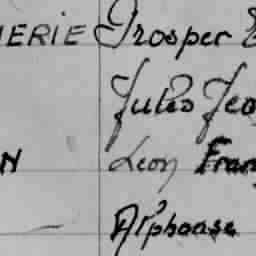 HERIE Prosper E
Jules Jea
N Leon Fran
Alphonse